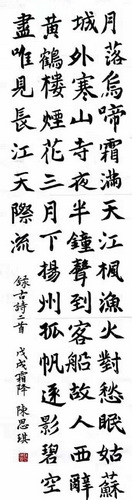 月落烏啼霜滿天江楓漁火對愁眠姑蘇
城外寒山寺夜半鐘聲到客船故人西辭
黃鶴樓煙花三月下揚州孤帆遠影碧空
盡唯見長江天際流
錄古詩二首 戊戌霜降 陳思琪